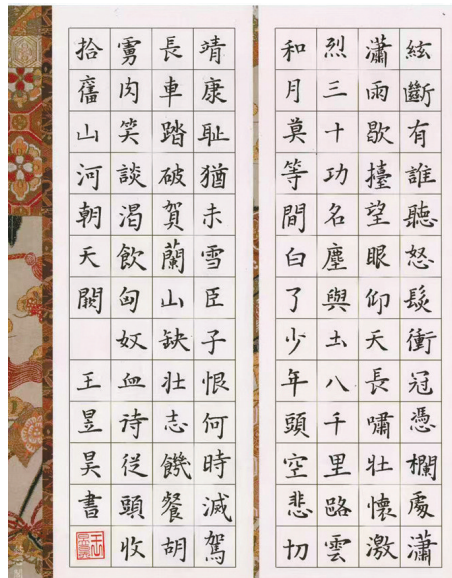 絃斷有誰聽怒髮衝冠憑欄處瀟
瀟雨歇擡望眼仰天長嘯壯懷激
烈三十功名塵與土八千里路雲
和月莫等間白了少年頭空悲切
靖康耻猶未雪臣子恨何時滅駕
長車踏破賀蘭山缺壯志饑餐胡
虜肉笑談渴飲匈奴血诗從頭收
拾舊山河朝天闕 王昱昊書